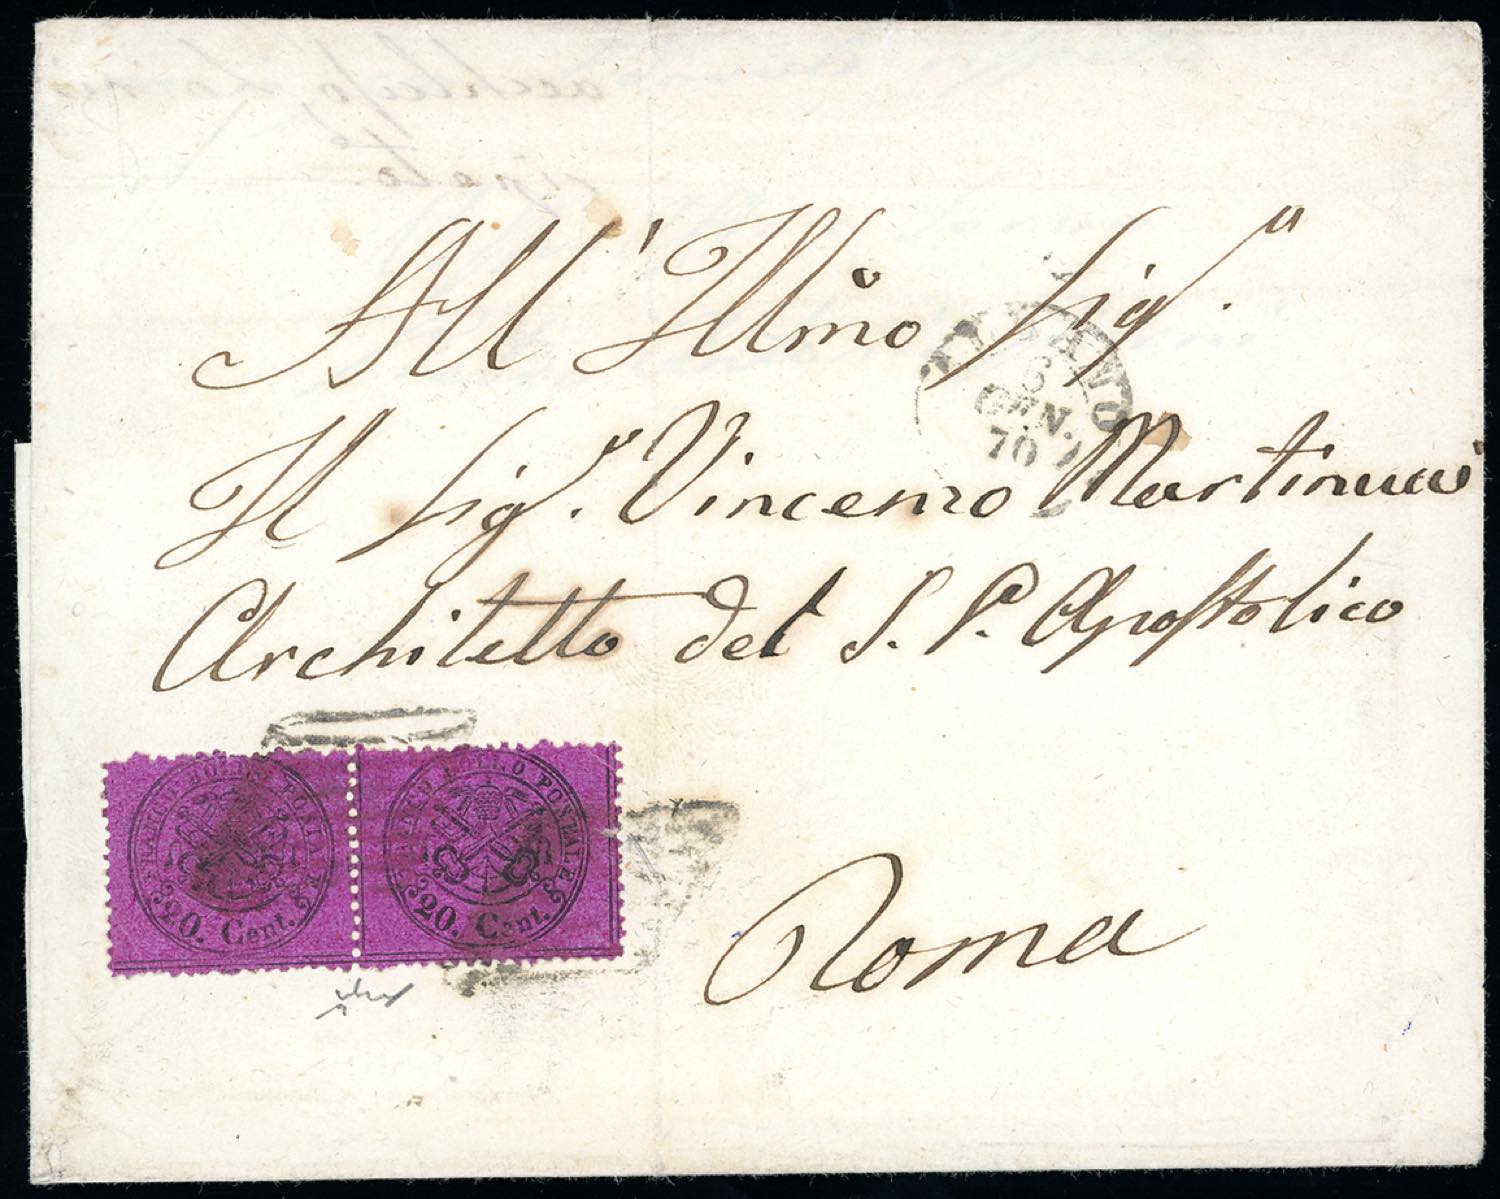 All' Illmo Sigʳ.
Il Sigʳ. Vincenzo Martinucci
Architetto del S. P. Apostolico
Roma
ALBANO
6
GEN.
70
FRANCO BOLLO POSTALE
20. Cent.
FRANCO BOLLO POSTALE
20. Cent.